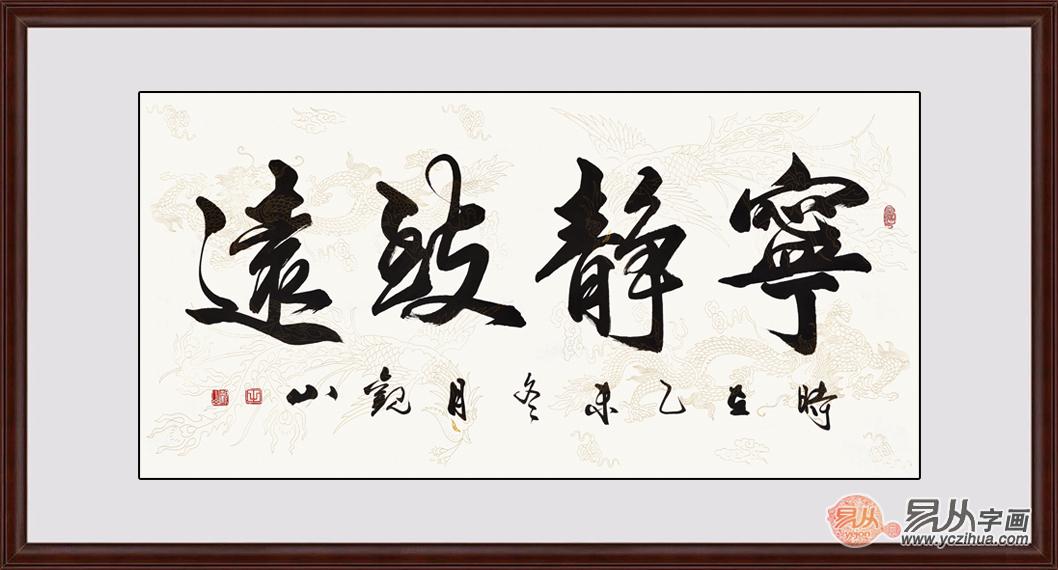 寧靜致遠
時在乙未冬月觀山
易从字画
www.yczihua.com